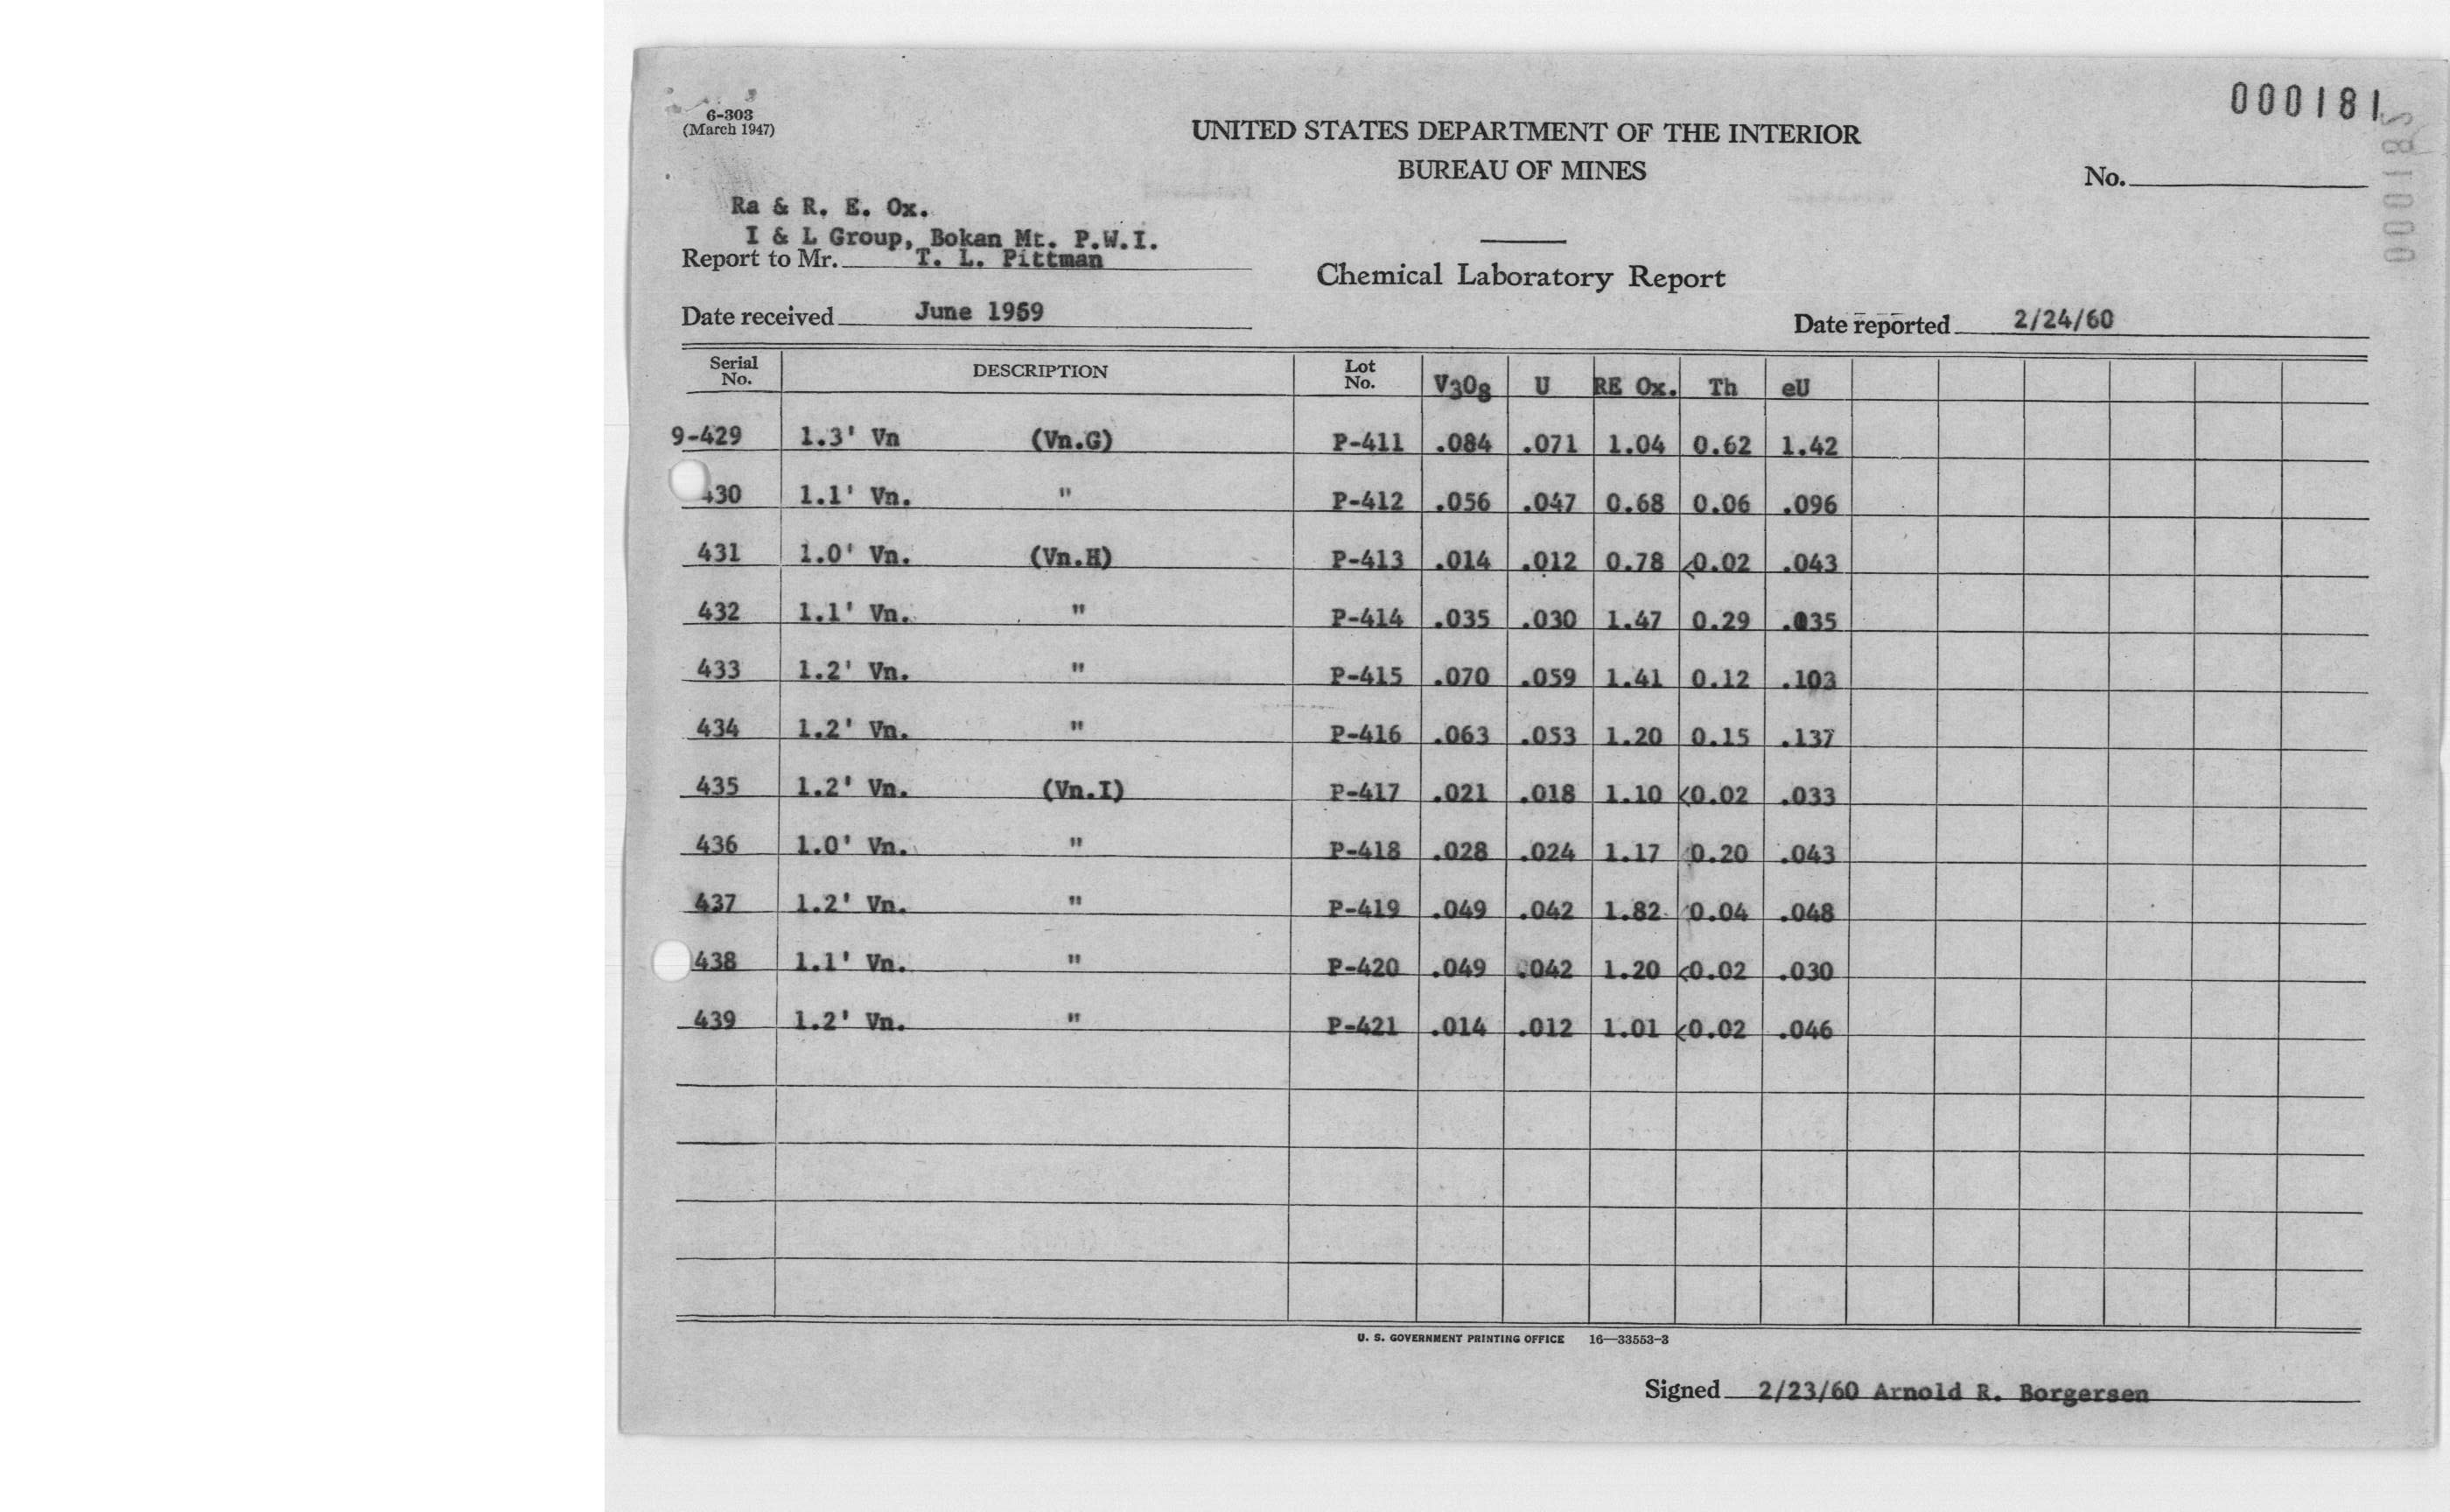 000181
6-303
(March 1947)
UNITED STATES DEPARTMENT OF THE INTERIOR
BUREAU OF MINES
No.
Ra & R. E. Ox.
I & L Group, Bokan Mt. P.W.I.
Report to Mr. T. L. Pittman
Chemical Laboratory Report
Date received June 1959
Date reported 2/24/60
Serial No. DESCRIPTION Lot No. V3O8 U RE Ox. Th eU
9-429 1.3' Vn (Vn.G) P-411 .084 .071 1.04 0.62 1.42
430 1.1' Vn. " P-412 .056 .047 0.68 0.06 .096
431 1.0' Vn. (Vn.H) P-413 .014 .012 0.78 <0.02 .043
432 1.1' Vn. " P-414 .035 .030 1.47 0.29 .035
433 1.2' Vn. " P-415 .070 .059 1.41 0.12 .103
434 1.2' Vn. " P-416 .063 .053 1.20 0.15 .137
435 1.2' Vn. (Vn.I) P-417 .021 .018 1.10 <0.02 .033
436 1.0' Vn. " P-418 .028 .024 1.17 0.20 .043
437 1.2' Vn. " P-419 .049 .042 1.82 0.04 .048
438 1.1' Vn. " P-420 .049 .042 1.20 <0.02 .030
439 1.2' Vn. " P-421 .014 .012 1.01 <0.02 .046
U. S. GOVERNMENT PRINTING OFFICE 16—33553-3
Signed 2/23/60 Arnold R. Borgersen